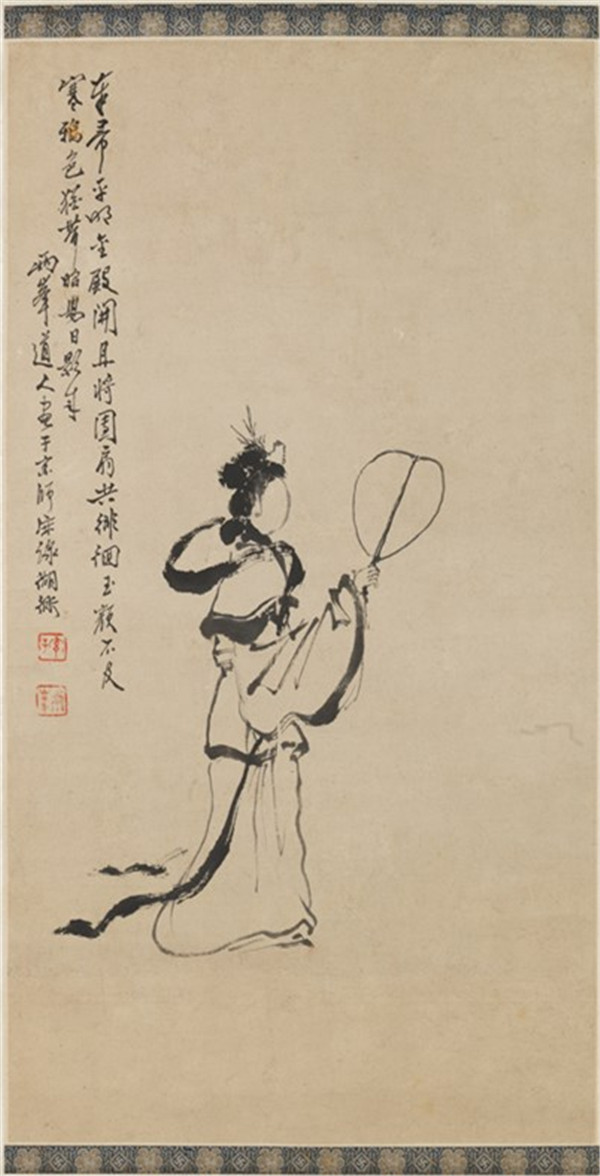 奉帚平明金殿開且將團扇共徘徊玉顏不及
寒鴉色猶帶昭陽日影來
兩峯道人畫于京師胡衕